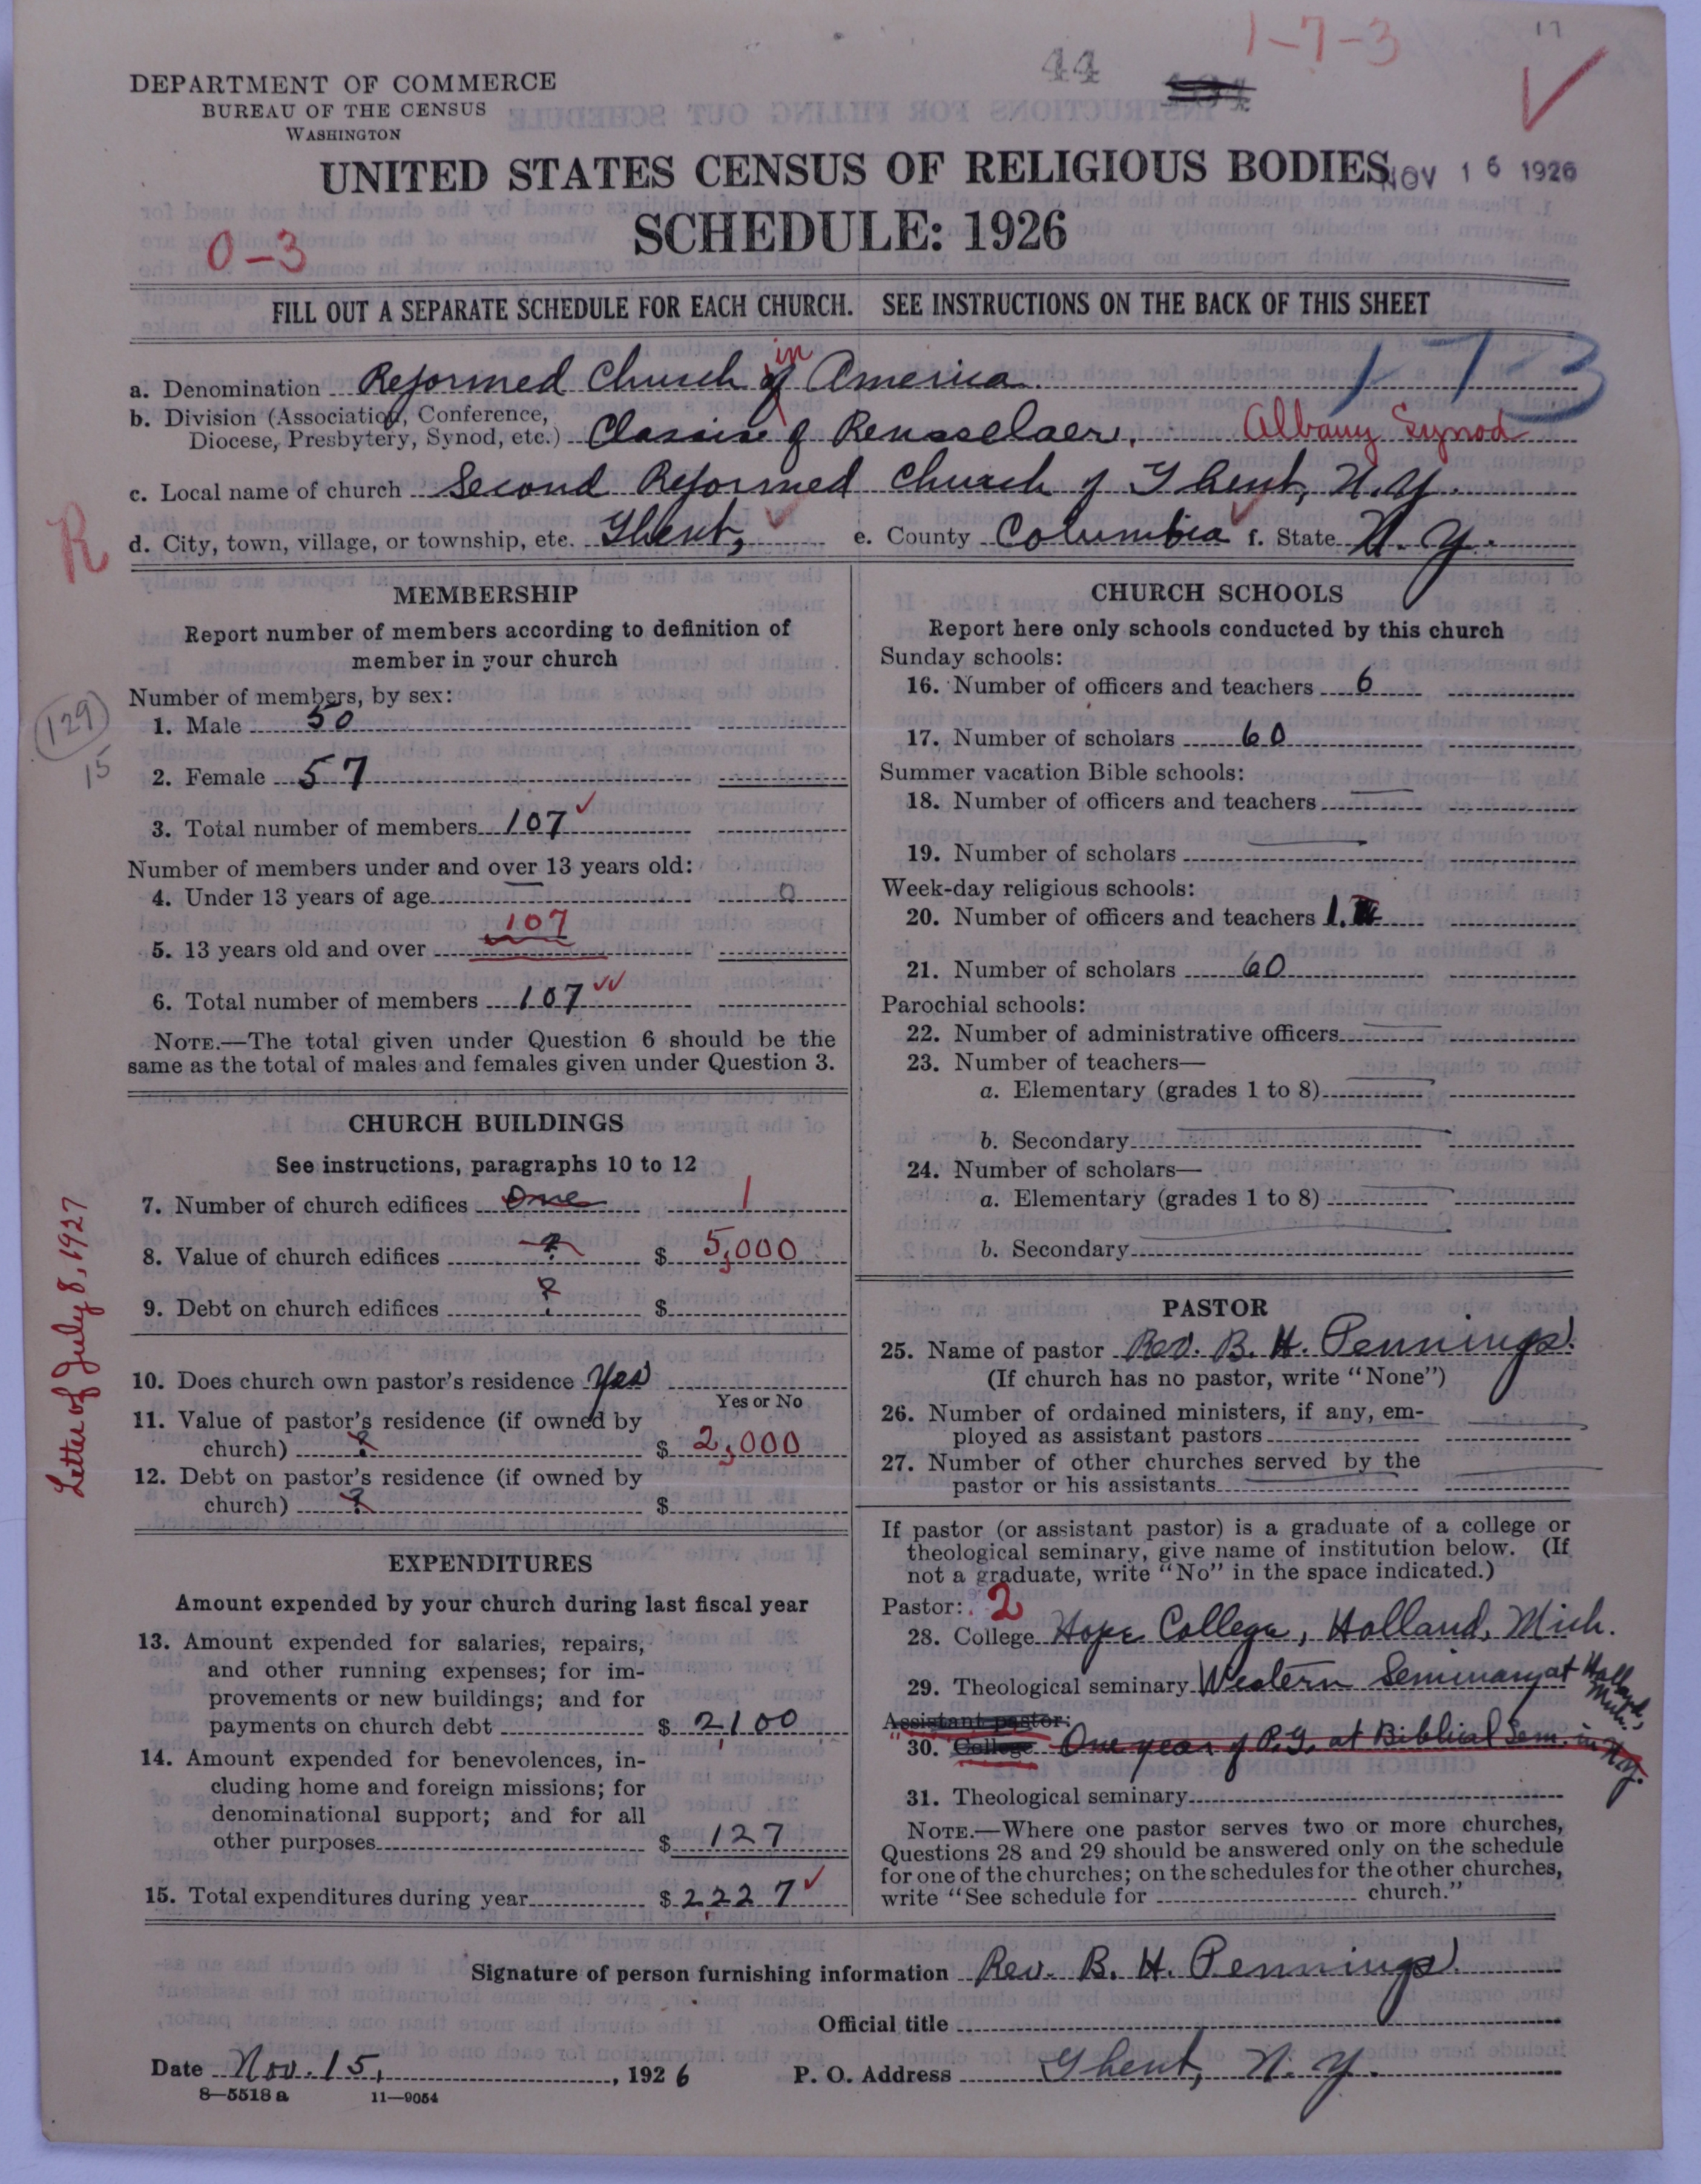 17
1-7-3
44
DEPARTMENT OF COMMERCE
BUREAU OF THE CENSUS
WASHINGTON
UNITED STATES CENSUS OF RELIGIOUS BODIES
NOV 16 1926
SCHEDULE: 1926
0-3
FILL OUT A SEPARATE SCHEDULE FOR EACH CHURCH. SEE INSTRUCTIONS ON THE BACK OF THIS SHEET
173
a. Denomination Reformed Church of in America
b. Division (Association, Conference,
Diocese, Presbytery, Synod, etc.) Classis of Rensselaer, Albany Synod
c. Local name of church Second Reformed Church of Ghent, N.Y.
R
d. City, town, village, or township, etc. Ghent, e. County Columbia f. State N.Y.
MEMBERSHIP
Report number of members according to definition of
member in your church
Number of members, by sex:
129
15
1. Male 50
2. Female 57
3. Total number of members 107
Number of members under and over 13 years old:
4. Under 13 years of age 0
5. 13 years old and over 107
6. Total number of members 107
NOTE.—The total given under Question 6 should be the
same as the total of males and females given under Question 3.
CHURCH BUILDINGS
See instructions, paragraphs 10 to 12
7. Number of church edifices one 1
8. Value of church edifices ? $ 5,000
9. Debt on church edifices ? $
10. Does church own pastor's residence Yes
Yes or No
11. Value of pastor's residence (if owned by
church) ? $ 2,000
12. Debt on pastor's residence (if owned by
church) ? $
Letter of July 8, 1927
EXPENDITURES
Amount expended by your church during last fiscal year
13. Amount expended for salaries, repairs,
and other running expenses; for im-
provements or new buildings; and for
payments on church debt $ 2,100
14. Amount expended for benevolences, in-
cluding home and foreign missions; for
denominational support; and for all
other purposes $ 127
15. Total expenditures during year $ 2,227
CHURCH SCHOOLS
Report here only schools conducted by this church
Sunday schools:
16. Number of officers and teachers 6
17. Number of scholars 60
Summer vacation Bible schools:
18. Number of officers and teachers
19. Number of scholars
Week-day religious schools:
20. Number of officers and teachers 1.
21. Number of scholars 60
Parochial schools:
22. Number of administrative officers
23. Number of teachers—
a. Elementary (grades 1 to 8)
b. Secondary
24. Number of scholars—
a. Elementary (grades 1 to 8)
b. Secondary
PASTOR
25. Name of pastor Rev. B. H. Pennings
(If church has no pastor, write "None")
26. Number of ordained ministers, if any, em-
ployed as assistant pastors
27. Number of other churches served by the
pastor or his assistants
If pastor (or assistant pastor) is a graduate of a college or
theological seminary, give name of institution below. (If
not a graduate, write "No" in the space indicated.)
Pastor: 2
28. College Hope College, Holland, Mich.
29. Theological seminary Western Seminary at Holland, Mich.
Assistant pastor:
30. College One year of P.G. at Biblical Sem. in N.Y.
31. Theological seminary
NOTE.—Where one pastor serves two or more churches,
Questions 28 and 29 should be answered only on the schedule
for one of the churches; on the schedules for the other churches,
write "See schedule for church."
Signature of person furnishing information Rev. B. H. Pennings
Official title
Date Nov. 15, 1926 P. O. Address Ghent, N.Y.
8—5518 a 11—9054